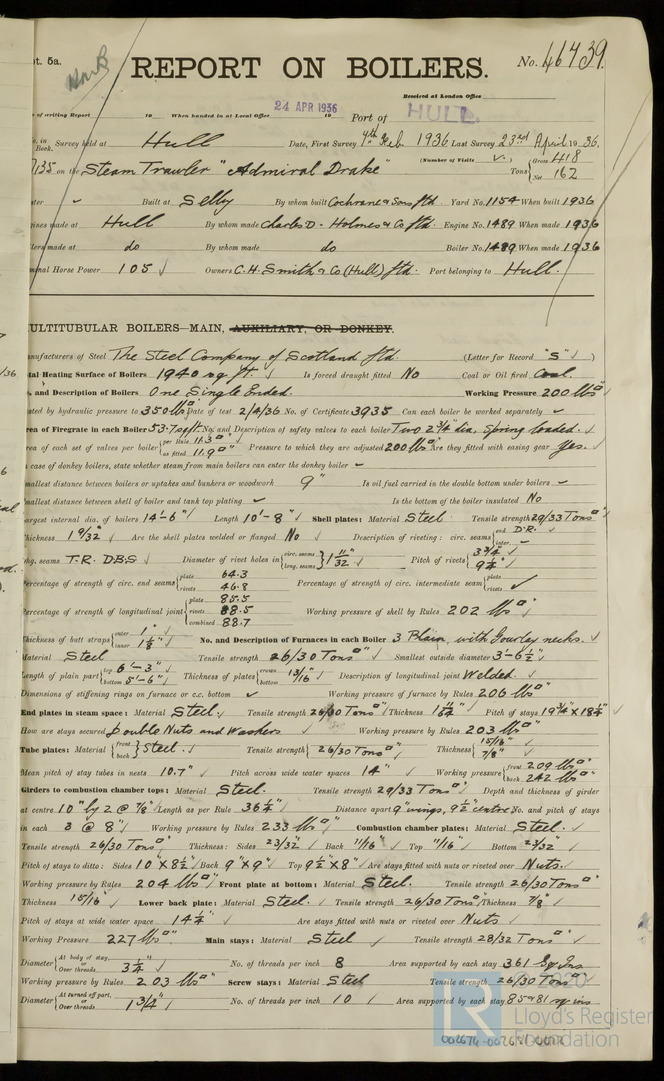 pt. 5a.
REPORT ON BOILERS.
No. 46439
Received at London Office
of writing Report 19 When handed in at Local Office 24 APR 1936 19 Port of HULL.
in Book. Survey held at Hull Date, First Survey 4th Feb. 1936 Last Survey 23rd April 1936.
(Number of Visits
on the Steam Trawler "Admiral Drake" Tons Gross 418 Net 162
Built at Selby By whom built Cochrane & Sons Ltd. Yard No. 1154 When built 1936
ines made at Hull By whom made Charles D. Holmes & Co Ltd. Engine No. 1489 When made 1936
lers made at do By whom made do Boiler No. 1489 When made 1936
inal Horse Power 105 Owners C.H. Smith & Co (Hull) Ltd. Port belonging to Hull.
ULTITUBULAR BOILERS—MAIN, AUXILIARY, OR DONKEY.
anufacturers of Steel The Steel Company of Scotland Ltd. (Letter for Record "S")
tal Heating Surface of Boilers 1940 sq ft. Is forced draught fitted No Coal or Oil fired Coal.
and Description of Boilers One Single Ended. Working Pressure 200 lbs□"
ted by hydraulic pressure to 350 lbs□" Date of test 2/4/36 No. of Certificate 3935 Can each boiler be worked separately ✓
rea of Firegrate in each Boiler 53.7 sq ft. No. and Description of safety valves to each boiler Two 2¾" dia, Spring loaded. ✓
rea of each set of valves per boiler per Rule 11.3□" as fitted 11.9□" Pressure to which they are adjusted 200 lbs□" Are they fitted with easing gear Yes.
case of donkey boilers, state whether steam from main boilers can enter the donkey boiler ✓
mallest distance between boilers or uptakes and bunkers or woodwork 9" Is oil fuel carried in the double bottom under boilers ✓
mallest distance between shell of boiler and tank top plating ✓ Is the bottom of the boiler insulated No
argest internal dia. of boilers 14'-6" Length 10'-8" Shell plates: Material Steel Tensile strength 29/33 Tons□"
hickness 1 9/32" Are the shell plates welded or flanged No Description of riveting: circ. seams end D.R. inter. ✓
ng. seams T.R. D.B.S Diameter of rivet holes in circ. seams long. seams 1 11/32" Pitch of rivets 3¾" 9
ercentage of strength of circ. end seams plate 64.3 rivets 46.8 Percentage of strength of circ. intermediate seam plate rivets ✓
ercentage of strength of longitudinal joint plate 85.5 rivets 88.5 combined 88.7 Working pressure of shell by Rules 202 lbs□"
hickness of butt straps outer 1" inner 1⅛" No. and Description of Furnaces in each Boiler 3 Plain, with Gourley necks. ✓
Material Steel Tensile strength 26/30 Tons□" Smallest outside diameter 3'-6½"
Length of plain part top 6'-3" bottom 5'-6" Thickness of plates crown bottom 13/16" Description of longitudinal joint Welded.
Dimensions of stiffening rings on furnace or c.c. bottom ✓ Working pressure of furnace by Rules 206 lbs□"
End plates in steam space: Material Steel. Tensile strength 26/30 Tons□" Thickness Pitch of stays 19¾" × 18¼"
How are stays secured Double Nuts and Washers Working pressure by Rules 203 lbs□"
Tube plates: Material front back Steel. Tensile strength 26/30 Tons□" Thickness 15/16" 7/8"
Mean pitch of stay tubes in nests 10.7" Pitch across wide water spaces 14" Working pressure front 209 lbs□" back 242 lbs□"
Girders to combustion chamber tops: Material Steel. Tensile strength 29/33 Tons□" Depth and thickness of girder
at centre 10" by 2 @ 7/8" Length as per Rule 36¼" Distance apart 9" wings, 9½" centre No. and pitch of stays
in each 3 @ 8" Working pressure by Rules 233 lbs□" Combustion chamber plates: Material Steel.
Tensile strength 26/30 Tons□" Thickness: Sides 23/32" Back 11/16" Top 11/16" Bottom 23/32"
Pitch of stays to ditto: Sides 10" × 8½" Back 9" × 9" Top 9½" × 8" Are stays fitted with nuts or riveted over Nuts.
Working pressure by Rules 204 lbs□" Front plate at bottom: Material Steel. Tensile strength 26/30 Tons□"
Thickness 15/16" Lower back plate: Material Steel. Tensile strength 26/30 Tons□" Thickness 7/8"
Pitch of stays at wide water space 14¼" Are stays fitted with nuts or riveted over Nuts
Working Pressure 227 lbs□" Main stays: Material Steel Tensile strength 28/32 Tons□"
Diameter At body of stay, or Over threads 3¼" No. of threads per inch 8 Area supported by each stay 361 Sq Ins
Working pressure by Rules 203 lbs□" Screw stays: Material Steel Tensile strength 26/30 Tons□"
Diameter At turned off part, or Over threads 1¾" No. of threads per inch 10 Area supported by each stay 85 & 81 sq ins
LR
© 2020
Lloyd's Register
Foundation